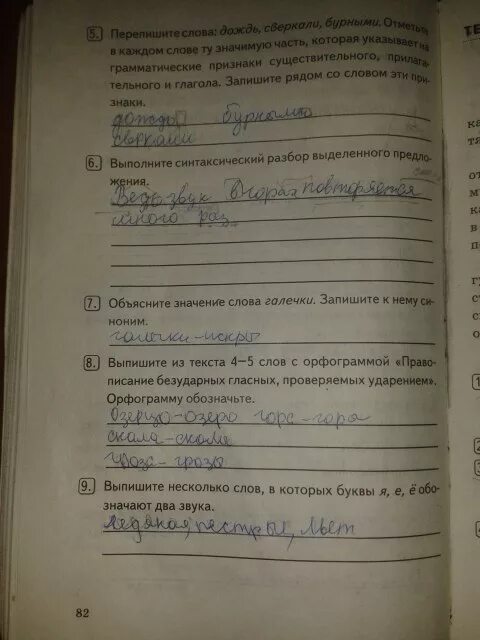 5. Перепишите слова: дождь, сверкали, бурными. Отметьте
в каждом слове ту значимую часть, которая указывает на
грамматические признаки существительного, прилага-
тельного и глагола. Запишите рядом со словом эти при-
знаки.
дождь бурными
сверкали
6. Выполните синтаксический разбор выделенного предло-
жения.
Ведь звук в горах повторяется
много раз
7. Объясните значение слова галечки. Запишите к нему си-
ноним.
галечки-искры
8. Выпишите из текста 4–5 слов с орфограммой «Право-
писание безударных гласных, проверяемых ударением».
Орфограмму обозначьте.
Озерцо-озеро гора-горы
скала-скалы
гроза-грозы
9. Выпишите несколько слов, в которых буквы я, е, ё обо-
значают два звука.
Ледяная, пестрые, льет
82